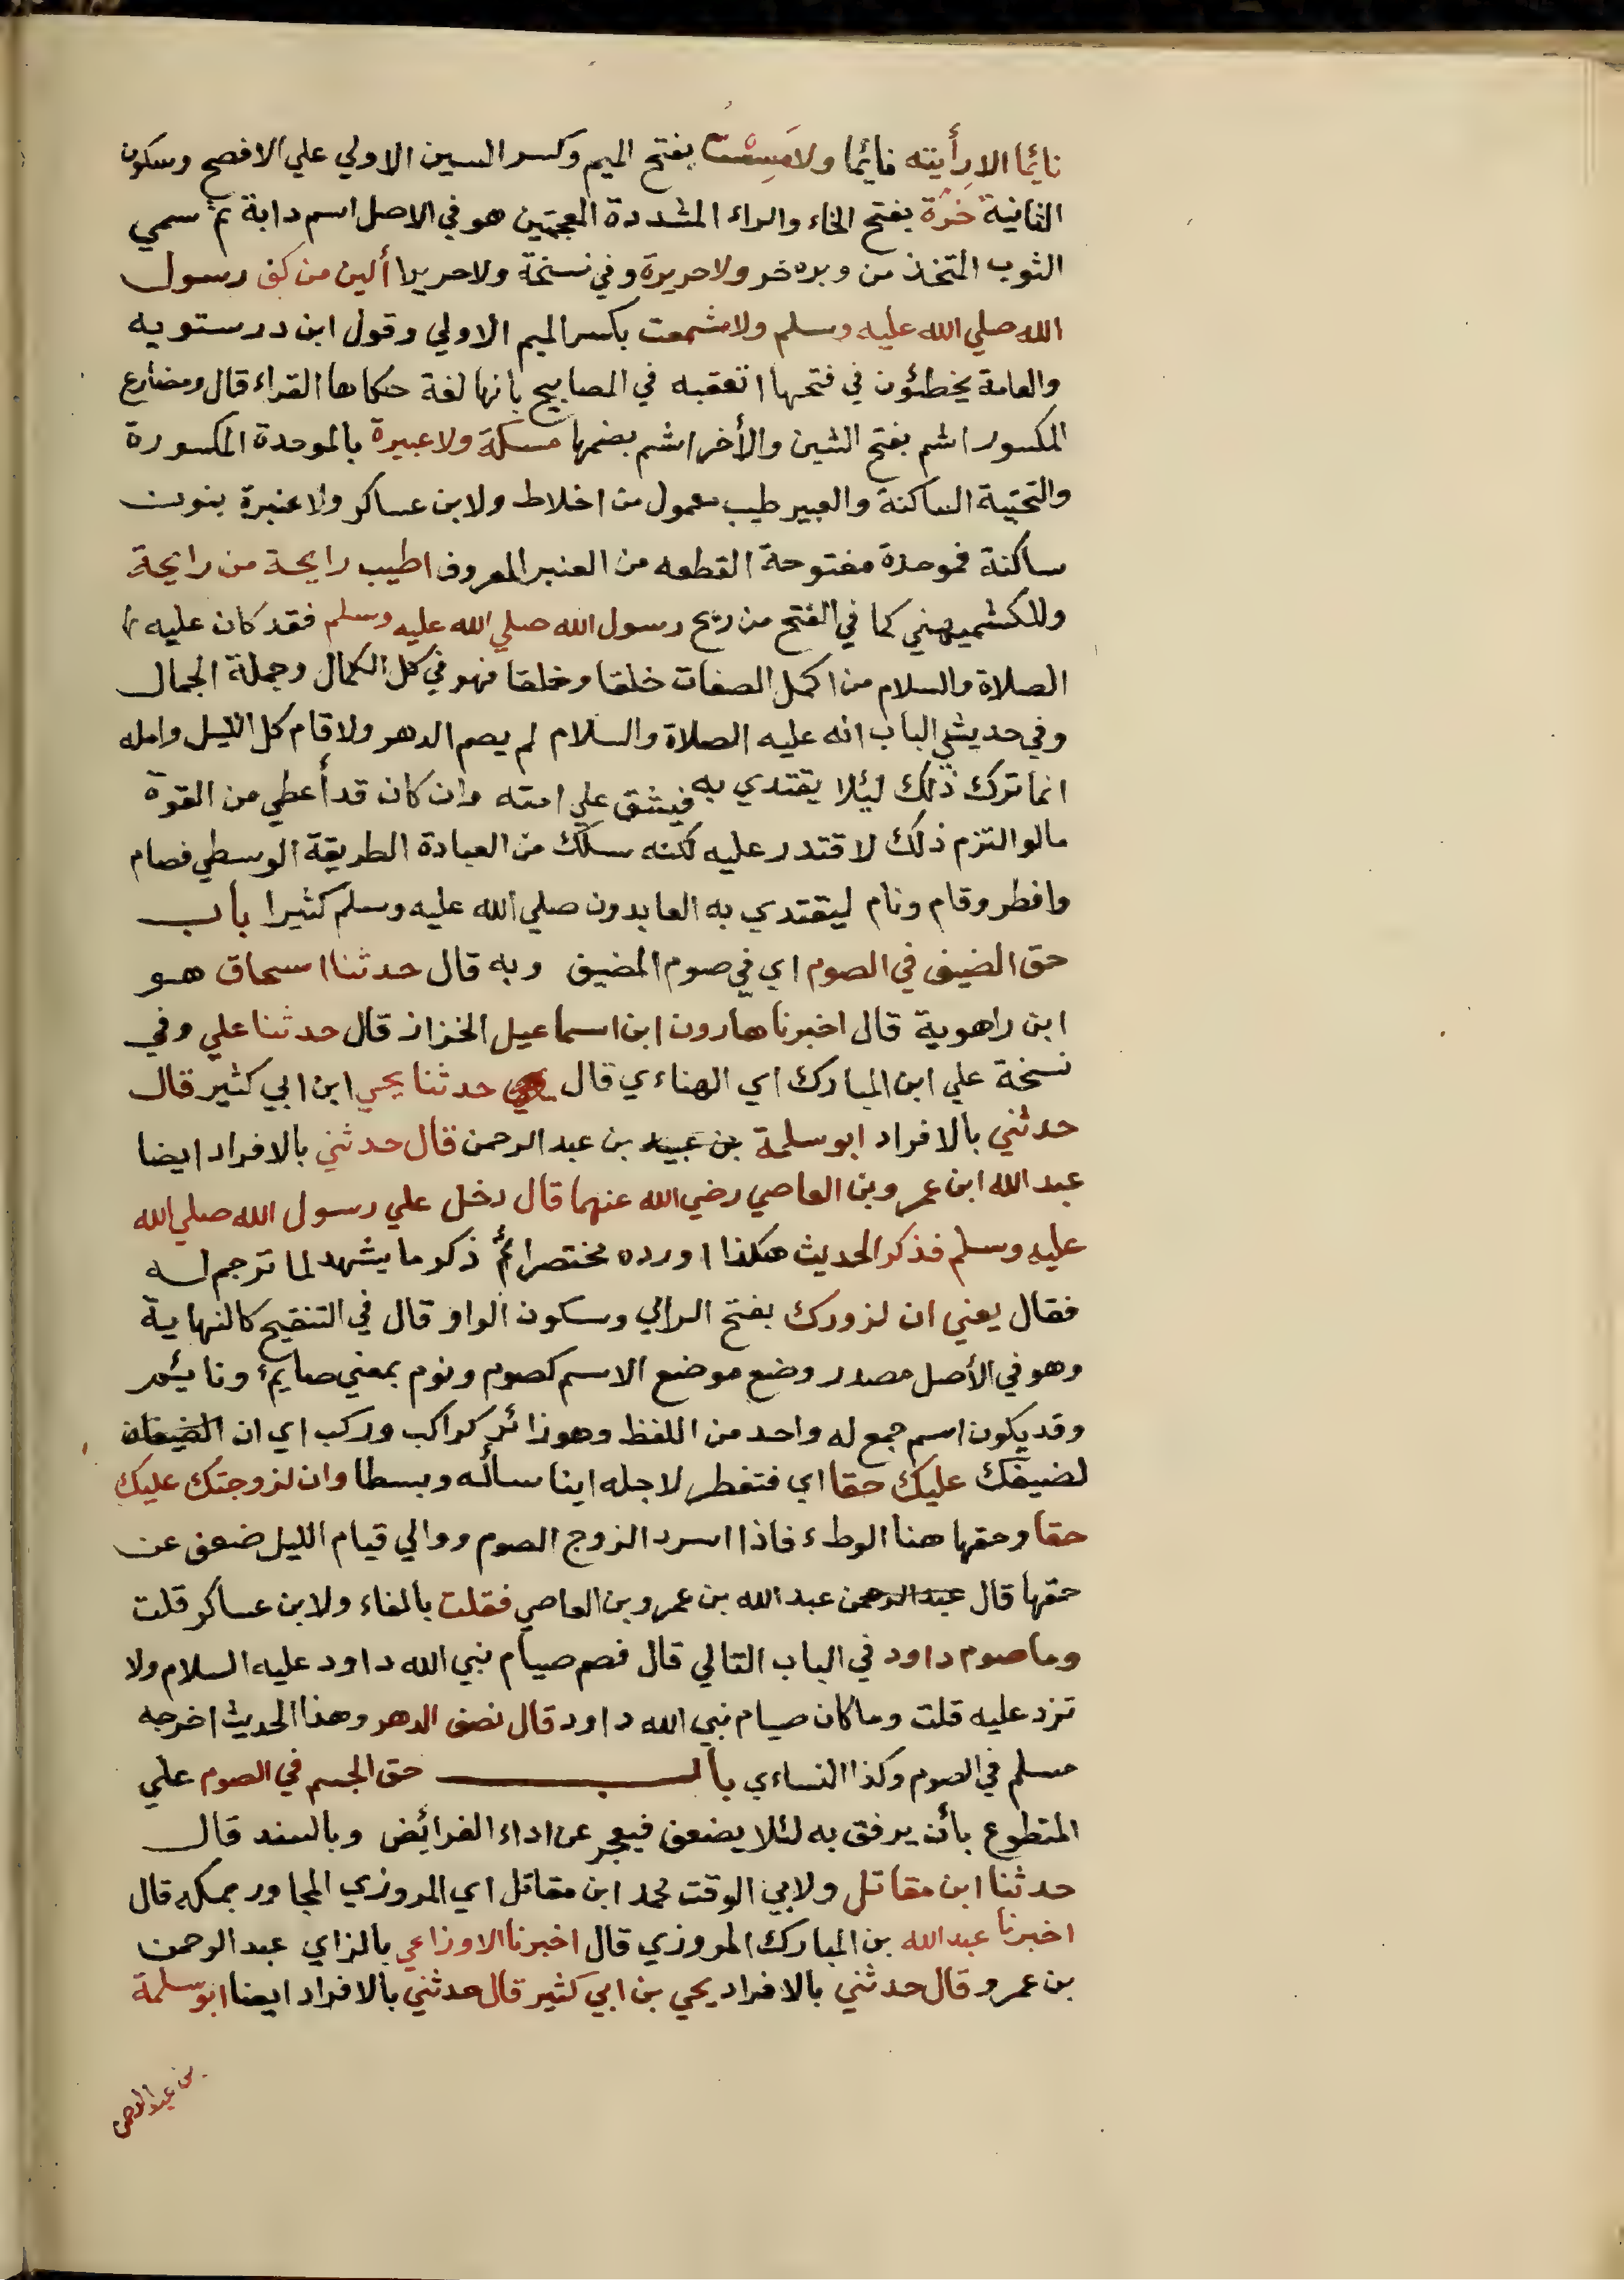 نائما الا رأيته نائما ولا مسست بفتح الميم وكسر السين الاولي علي الافصح وسكون
الثانية خزة بفتح الخاء والراء المشددة المعجمتين هو في الاصل اسم دابة ثم سمي
الثوب المتخذ من وبره خز ولا حريرة وفي نسخة ولا حريرا ألين من كف رسول
الله صلي الله عليه وسلم ولا شممت بكسر الميم الاولي وقول ابن درستويه
والعامة يخطئون في فتحها اتعقبه في المصابيح بانها لغة حكاها الفراء قال ومضارع
المكسور اشم بفتح الشين والأخر اشم بضمها مسكة ولا عبيرة بالموحدة المكسورة
والتحتية الساكنة والعبير طيب معمول من اخلاط ولابن عساكر ولا عنبرة بنون
ساكنة فموحدة مفتوحة القطعه من العنبر المعروف اطيب رايحة من رايحة
وللكشميهني كما في الفتح من ريح رسول الله صلي الله عليه وسلم فقد كان عليه
الصلاة والسلام من اكمل الصفات خلقا وخلقا فهو في كل الكمال وجملة الجمال
وفي حديثي الباب انه عليه الصلاة والسلام لم يصم الدهر ولا قام كل الليل وامله
انما ترك ذلك ليئلا يقتدي به فيشق علي امته وان كان قد أعطي من القوة
مالو التزم ذلك لاقتدر عليه لكنه سلك من العبادة الطريقة الوسطي فصام
وافطر وقام ونام ليقتدي به العابدون صلي الله عليه وسلم كثيرا باب
حق الضيف في الصوم اي في صوم المضيف وبه قال حدثنا اسحاق هو
ابن راهوية قال اخبرنا هارون ابن اسماعيل الخزاز قال حدثنا علي وفي
نسخة علي ابن المبارك اي الهناءي قال حدثنا يحيي ابن ابي كثير قال
حدثني بالافراد ابو سلمة بن عبيد بن عبد الرحمن قال حدثني بالافراد ايضا
عبد الله ابن عمرو بن العاصي رضي الله عنهما قال دخل علي رسول الله صلي الله
عليه وسلم فذكر الحديث هكذا اورده مختصرا ثم ذكر ما يشهد لما ترجم له
فقال يعني ان لزورك بفتح الزاي وسكون الواو قال في التنقيح كالنهاية
وهو في الأصل مصدر وضع موضع الاسم كصوم ونوم بمعني صايم ونايئم
وقد يكون اسم جمع له واحد من اللفظ وهو زائر كراكب وركب اي ان الضيفان
لضيفك عليك حقا اي فتفطر لاجله ايناسا له وبسطا وان لزوجتك عليك
حقا وحقها هنا الوطء فاذا اسرد الزوج الصوم ووالي قيام الليل ضعف عن
حقها قال عبد الرحمن عبد الله بن عمرو بن العاصي فقلت بالفاء ولابن عساكر قلت
وما صوم داود في الباب التالي قال فصم صيام نبي الله داود عليه السلام ولا
تزد عليه قلت وما كان صيام نبي الله داود قال نصف الدهر وهذا الحديث اخرجه
مسلم في الصوم وكذا النساءي باب حق الجسم في الصوم علي
المتطوع بأن يرفق به لئلا يضعف فيعجز عن اداء الفرائض وبالسند قال
حدثنا ابن مقاتل ولابي الوقت محمد ابن مقاتل اي المروزي المجاور بمكه قال
اخبرنا عبد الله بن المبارك المروزي قال اخبرنا الاوزاعي بالزاي عبد الرحمن
بن عمرو قال حدثني بالافراد يحي بن ابي كثير قال حدثني بالافراد ايضا ابو سلمة
بن عبد الرحمن